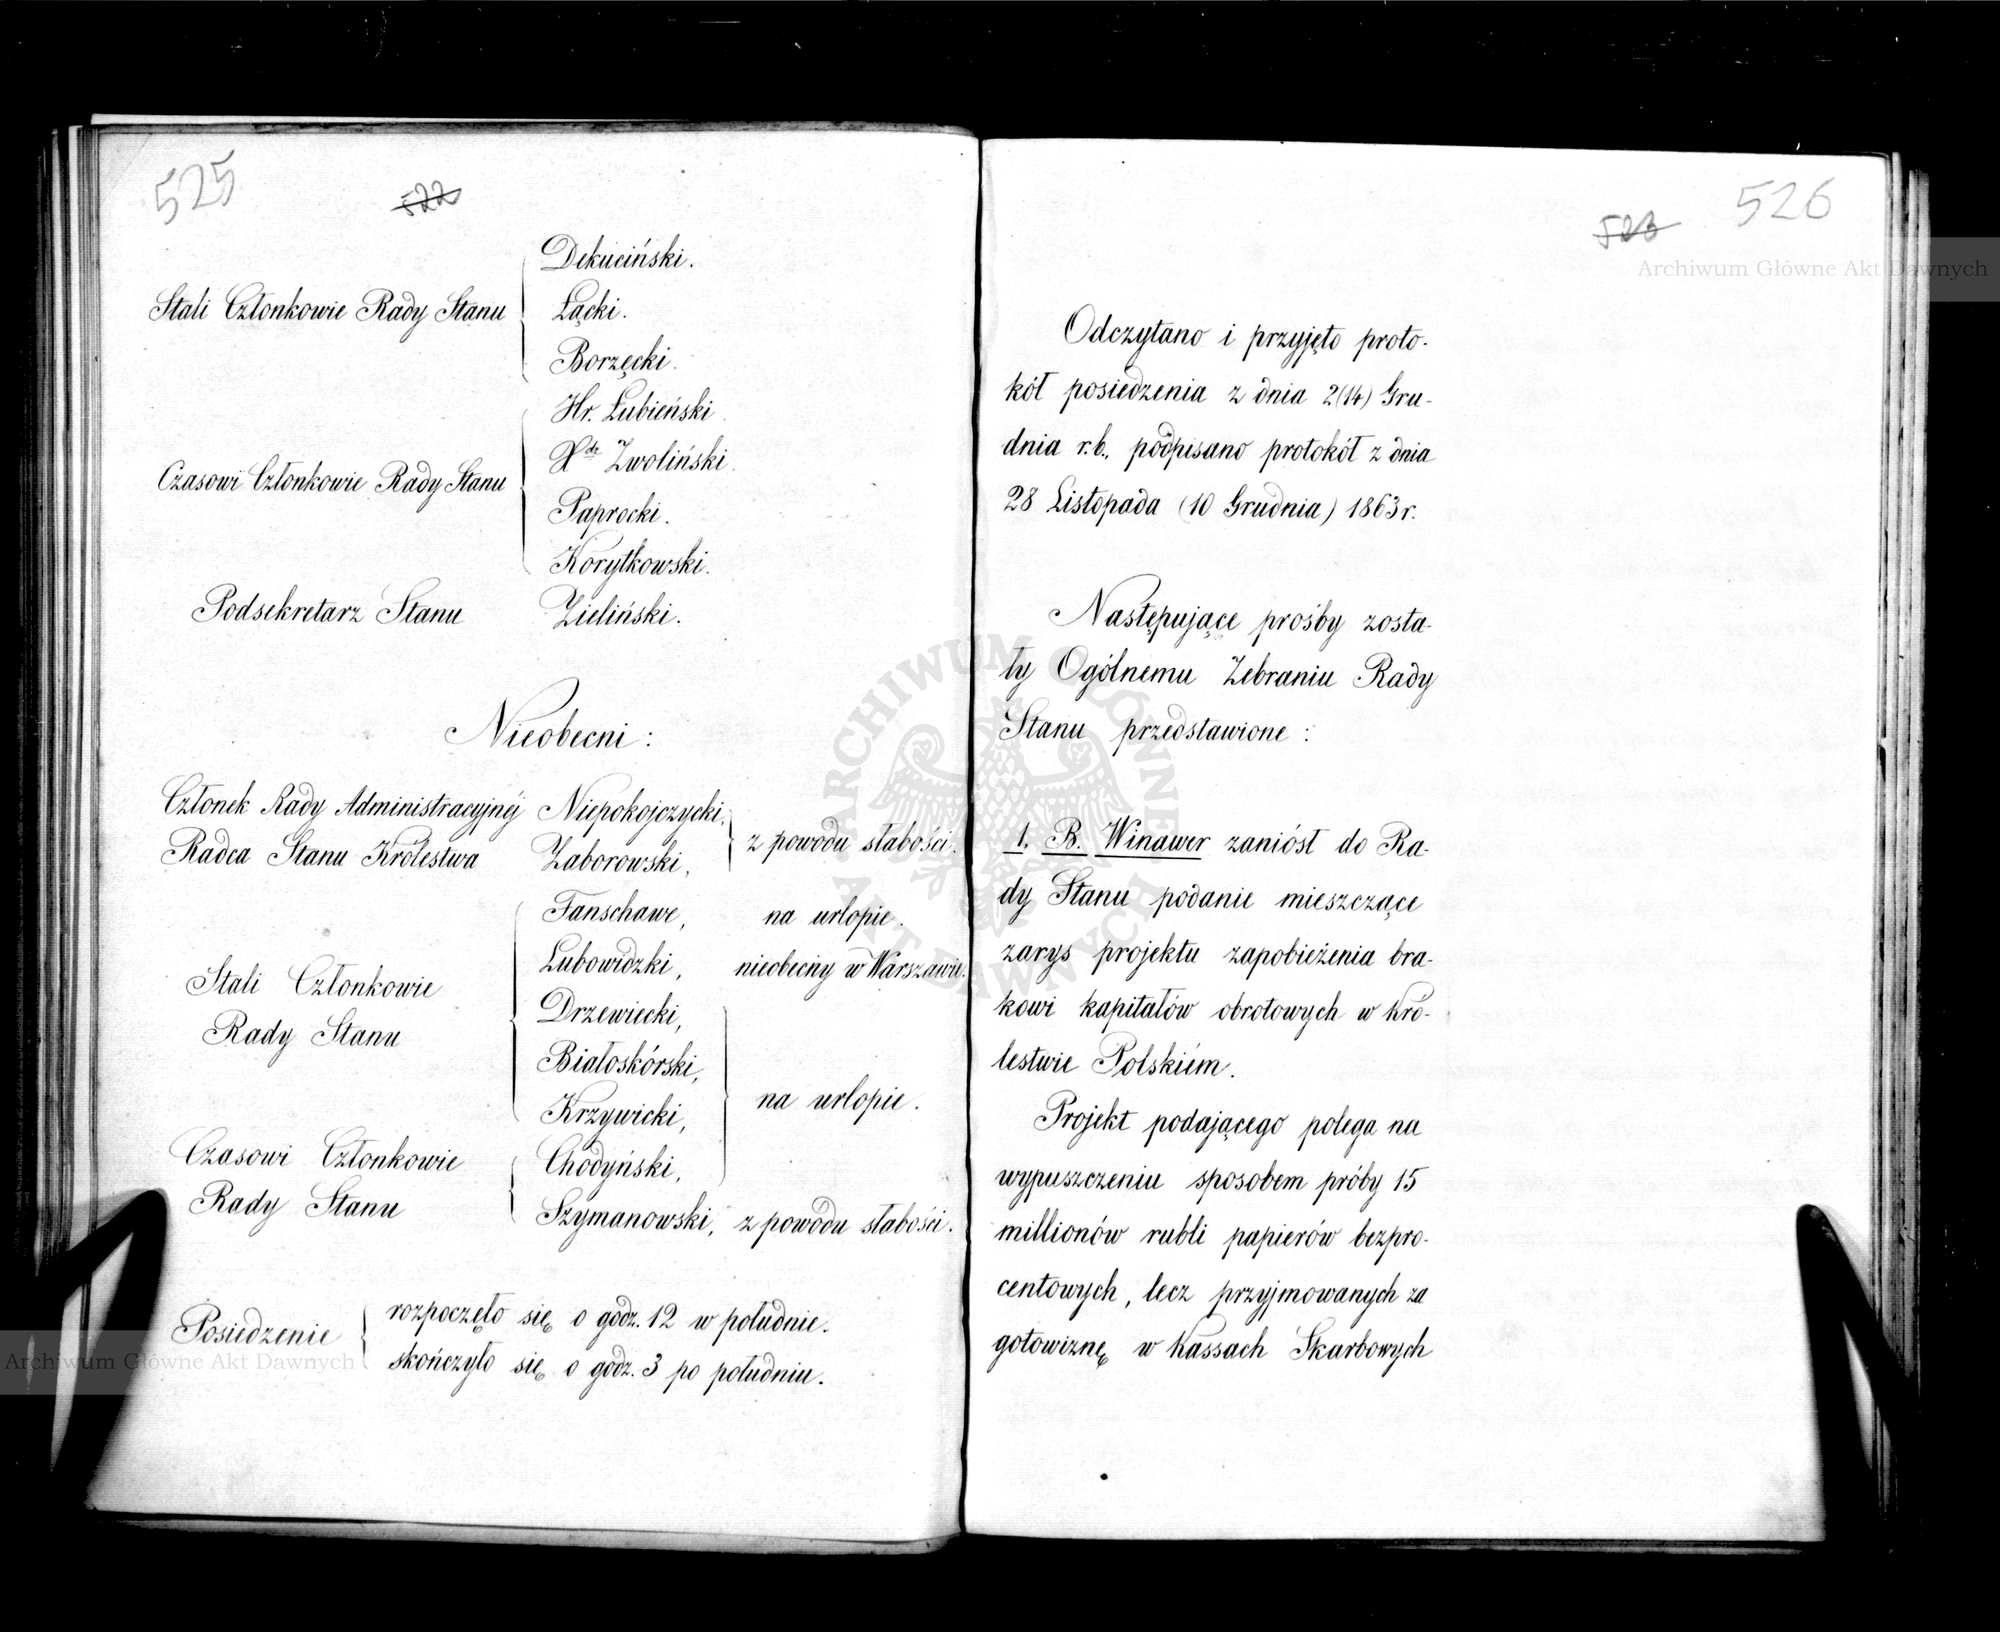 525
522
Dekuciński.
Stali Członkowie Rady Stanu
Łącki.
Borzęcki.
Hr. Łubieński.
Xdz Zwoliński.
Czasowi Członkowie Rady Stanu
Paprocki.
Korytkowski.
Podsekretarz Stanu Zieliński.
Nieobecni:
Członek Rady Administracyjnéj Niepokojczycki,
Radca Stanu Królestwa Zaborowski, z powodu słabości.
Fanschawe, na urlopie.
Lubowidzki, nieobecny w Warszawie.
Stali Członkowie
Rady Stanu
Drzewiecki,
Białoskórski,
Krzywicki, na urlopie.
Czasowi Członkowie
Rady Stanu
Chodyński,
Szymanowski, z powodu słabości.
Posiedzenie
rozpoczęło się o godz. 12 w południe.
skończyło się o godz. 3 po południu.
Archiwum Główne Akt Dawnych
526
523
Archiwum Główne Akt Dawnych
Odczytano i przyjęto proto-
kół posiedzenia z dnia 2(14) Gru-
dnia r.b., podpisano protokół z dnia
28 Listopada (10 Grudnia) 1863 r.
Następujące prośby zosta-
ły Ogólnemu Zebraniu Rady
Stanu przedstawione:
1. B. Winawer zaniósł do Ra-
dy Stanu podanie mieszczące
zarys projektu zapobieżenia bra-
kowi kapitałów obrotowych w Kró-
lestwie Polskiém.
Projekt podającego polega na
wypuszczeniu sposobem próby 15
millionów rubli papierów bezpro-
centowych, lecz przyjmowanych za
gotowiznę w Kassach Skarbowych
ARCHIWUM GŁÓWNE AKT DAWNYCH